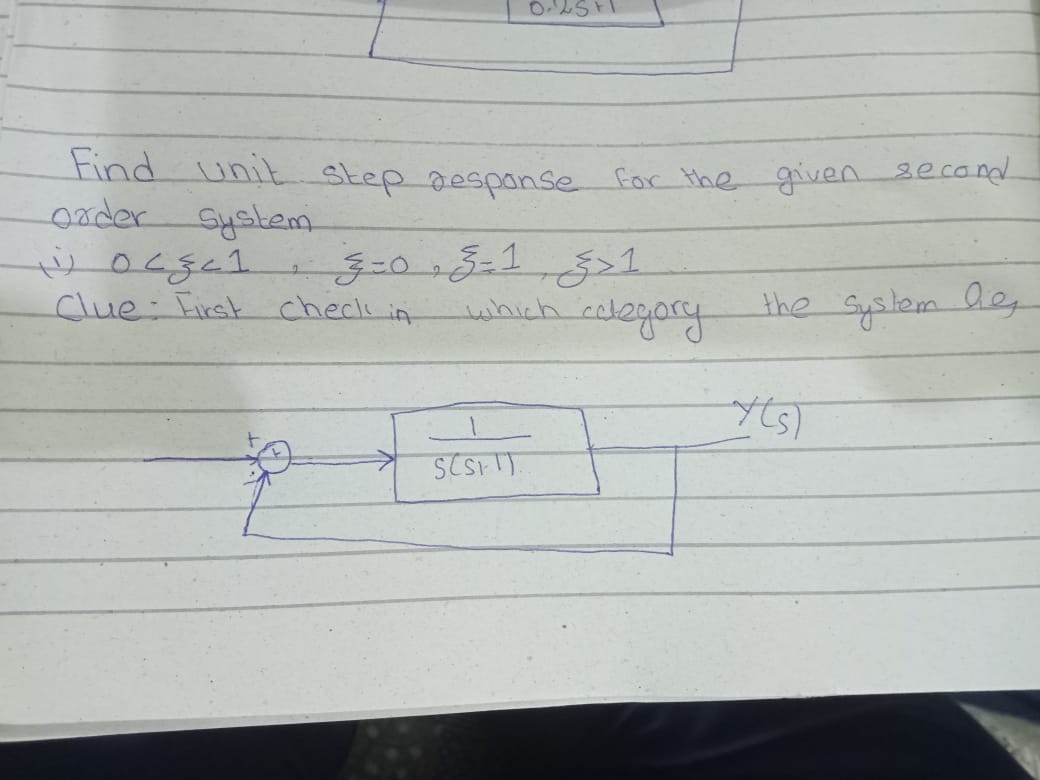 0.2S+1
Find unit step response for the given second
order system
(i) 0<ξ<1 , ξ=0 , ξ=1 , ξ>1
Clue: First check in which category the system lies
Y(s)
+
+
1
S(S+1)
-